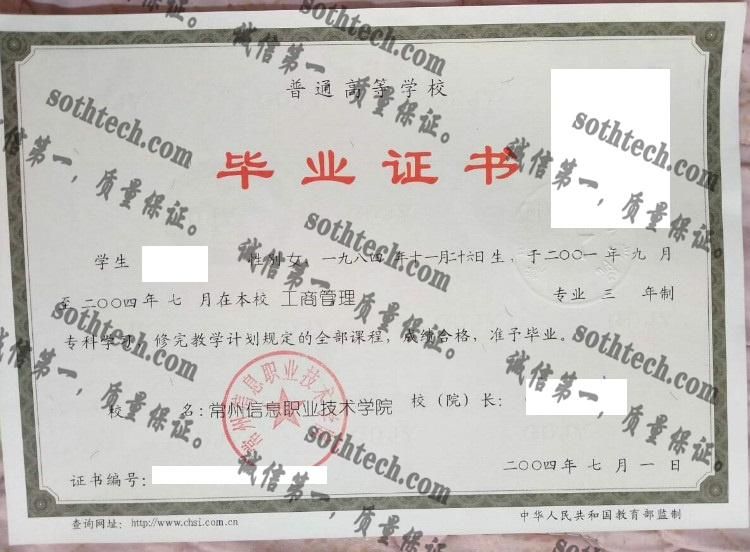 普通高等学校
毕业证书
学生 性别女，一九八四年十一月二十六日生，于二〇〇一年九月
至二〇〇四年七月在本校 工商管理 专业 三 年制
专科学习，修完教学计划规定的全部课程，成绩合格，准予毕业。
校 名：常州信息职业技术学院 校（院）长：
常州信息职业技术学院
证书编号： 二〇〇四年七月一日
查询网址：http://www.chsi.com.cn 中华人民共和国教育部监制
sothtech.com
诚信第一，质量保证。
sothtech.com
诚信第一，质量保证。
sothtech.com
诚信第一，质量保证。
sothtech.com
诚信第一，质量保证。
sothtech.com
诚信第一，质量保证。
sothtech.com
诚信第一，质量保证。
sothtech.com
诚信第一，质量保证。